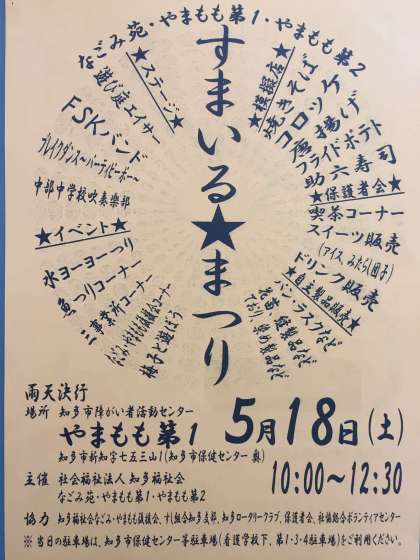 なごみ苑・やまもも第1・やまもも第2
すまいる★まつり
★ステージ★
遊び庭エイサー
FSKバンド
ブレイクダンス～パーティーピーポー～
中部中学校吹奏楽部
★イベント★
水ヨーヨーつり
魚つりコーナー
ミニ事業所コーナー
なごみ・やまもも議議会コーナー
梅子と遊ぼう
★模擬店★
焼きそば
コロッケ
唐揚げ
フライドポテト
助六寿司
★保護者会★
喫茶コーナー
スイーツ販売
(アイス、みたらし団子)
ドリンク販売
★自主製品販売★
パン・ラスクなど
花苗、縫製品など
ており、染め製品など
雨天決行
場所 知多市障がい者活動センター
やまもも第1
知多市新知字七五三山1(知多市保健センター 奥)
5月18日(土)
10:00～12:30
主催 社会福祉法人 知多福祉会
なごみ苑・やまもも第1・やまもも第2
協力 知多福祉会なごみ・やまもも議議会、すし組合知多支部、知多ロータリークラブ、保護者会、社協総合ボランティアセンター
※ 当日の駐車場は、知多市保健センター等駐車場(看護学校下、第1・3・4駐車場)をご利用ください。